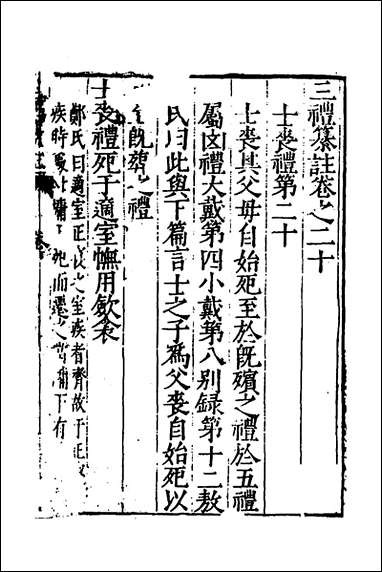 三禮纂註卷之二十
士喪禮第二十
士喪其父母自始死至於旣殯之禮於五禮
屬凶禮大戴第四小戴第八別錄第十二敖
氏曰此與下篇言士之子爲父喪自始死以
至旣葬之禮
士喪禮死于適室幠用斂衾
鄭氏曰適室正寢之室疾者齊故于正寢
疾時處北墉下死而遷之當牖下有